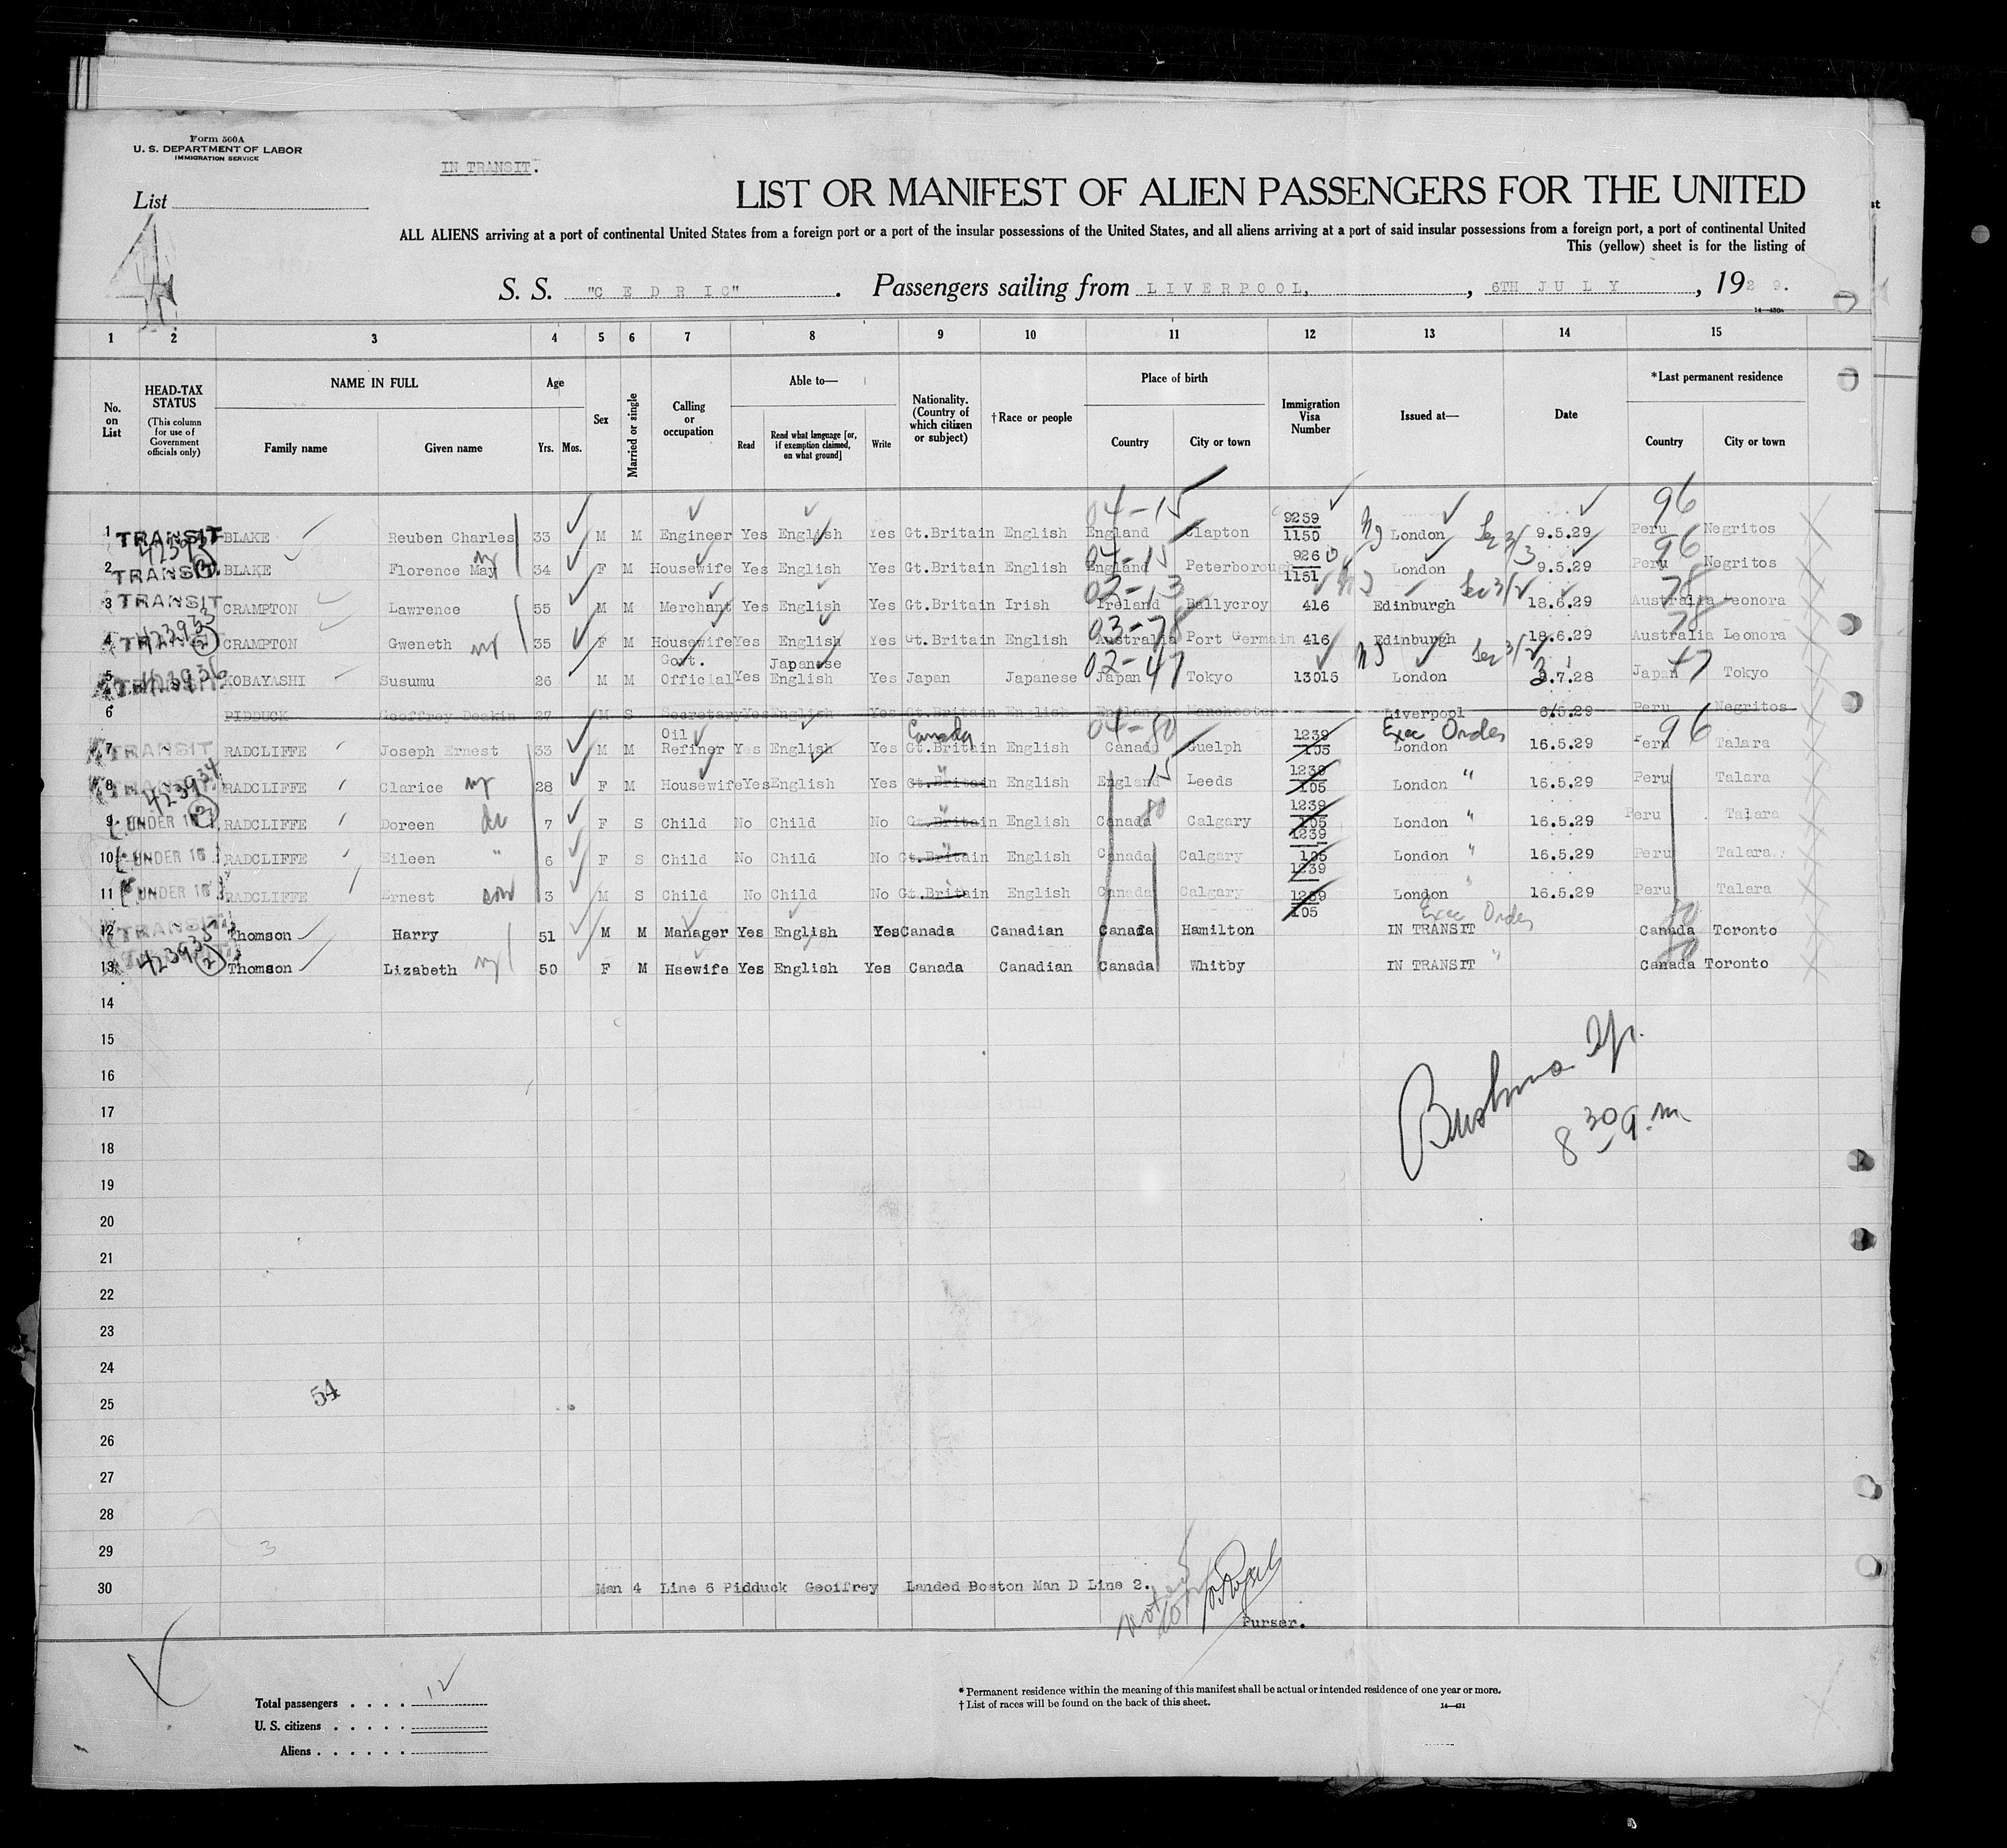 Form 500A
U. S. DEPARTMENT OF LABOR
IMMIGRATION SERVICE
IN TRANSIT.
List
4
LIST OR MANIFEST OF ALIEN PASSENGERS FOR THE UNITED
ALL ALIENS arriving at a port of continental United States from a foreign port or a port of the insular possessions of the United States, and all aliens arriving at a port of said insular possessions from a foreign port, a port of continental United
This (yellow) sheet is for the listing of
S. S. "CEDRIC". Passengers sailing from LIVERPOOL, , 6TH JULY , 1929.
1 2 3 4 5 6 7 8 9 10 11 12 13 14 15
No. on List
HEAD-TAX STATUS
(This column for use of Government officials only)
NAME IN FULL
Family name Given name
Age
Yrs. Mos.
Sex
Married or single
Calling or occupation
Able to—
Read Read what language [or, if exemption claimed, on what ground] Write
Nationality. (Country of which citizen or subject)
†Race or people
Place of birth
Country City or town
Immigration Visa Number
Issued at—
Date
*Last permanent residence
Country City or town
04-15 96
1 TRANSIT BLAKE Reuben Charles 33 M M Engineer Yes English Yes Gt.Britain English England Clapton 9259 1150 London 9.5.29 Peru Negritos
04-15 96
2 TRANSIT BLAKE Florence May 34 F M Housewife Yes English Yes Gt.Britain English England Peterborough 9260 1151 London 9.5.29 Peru Negritos
02-13 78
3 TRANSIT CRAMPTON Lawrence 55 M M Merchant Yes English Yes Gt.Britain Irish Ireland Ballycroy 416 Edinburgh 18.6.29 Australia Leonora
03-78 78
4 TRANSIT 423933 CRAMPTON Gweneth 35 F M Housewife Yes English Yes Gt.Britain English Australia Port Germain 416 Edinburgh 18.6.29 Australia Leonora
02-47 47
5 TRANSIT KOBAYASHI Susumu 26 M M Govt. Official Yes Japanese English Yes Japan Japanese Japan Tokyo 13015 London 3.7.28 Japan Tokyo
6 PIDDUCK Geoffrey Deakin 27 M S Secretary Yes English Yes Gt.Britain English England Manchester Liverpool 6.5.29 Peru Negritos
Canada 04-80 Exec Order 96
7 TRANSIT RADCLIFFE Joseph Ernest 33 M M Oil Refiner Yes English Yes Gt.Britain English Canada Guelph 1239 105 London 16.5.29 Peru Talara
8 TRANSIT 423934 RADCLIFFE Clarice 28 F M Housewife Yes English Yes Gt.Britain English England 15 Leeds 1239 105 London " 16.5.29 Peru Talara
9 UNDER 16 RADCLIFFE Doreen 7 F S Child No Child No Gt.Britain English Canada 80 Calgary 1239 105 London " 16.5.29 Peru Talara
10 UNDER 16 RADCLIFFE Eileen " 6 F S Child No Child No Gt.Britain English Canada Calgary 1239 105 London " 16.5.29 Peru Talara
11 UNDER 16 RADCLIFFE Ernest son 3 M S Child No Child No Gt.Britain English Canada Calgary 1239 105 London " 16.5.29 Peru Talara
Exec Order 80
12 TRANSIT Thomson Harry 51 M M Manager Yes English Yes Canada Canadian Canada Hamilton IN TRANSIT Canada Toronto
13 423935 Thomson Lizabeth 50 F M Hsewife Yes English Yes Canada Canadian Canada Whitby IN TRANSIT " Canada Toronto
14
15
16
17
8 30 a.m
18
19
20
21
22
23
24
25 54
26
27
28
29 3
30 Man 4 Line 6 Pidduck Geoffrey Landed Boston Man D Line 2.
Purser.
Total passengers . . . . 12
U. S. citizens . . . . .
Aliens . . . . . .
* Permanent residence within the meaning of this manifest shall be actual or intended residence of one year or more.
† List of races will be found on the back of this sheet.
14—431